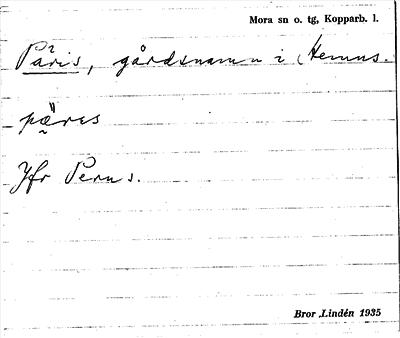 Mora sn o. tg, Kopparb. l.
Påris, gårdsnamn i Hemus.
päres
Jfr Perus.
Bror Lindén 1935